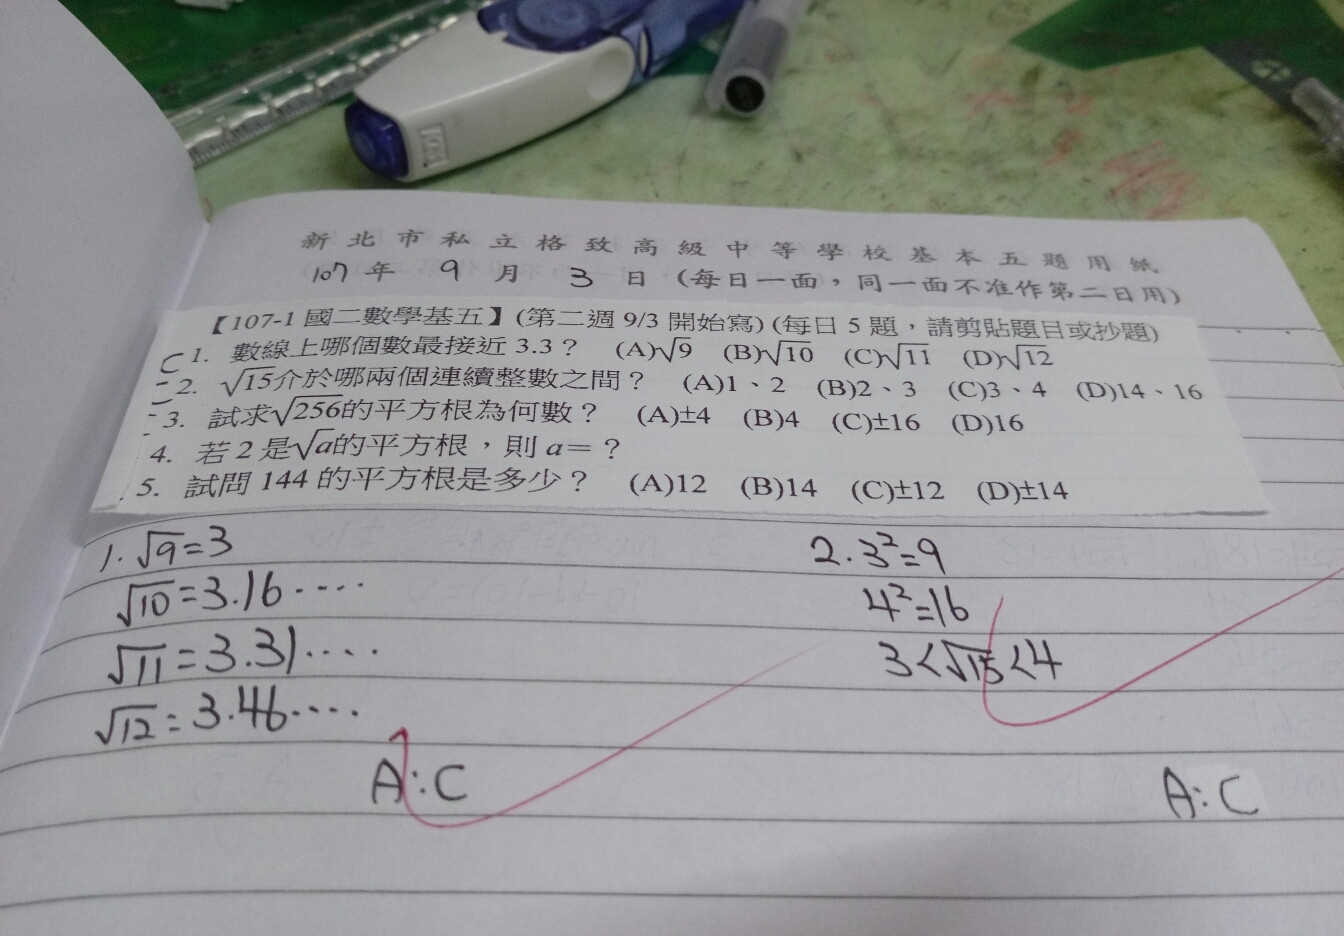 新北市私立格致高級中等學校基本五題用紙
107年 9月 3日 (每日一面，同一面不准作第二日用)
【107-1 國二數學基五】(第二週 9/3 開始寫) (每日 5 題，請剪貼題目或抄題)
C 1. 數線上哪個數最接近 3.3？ (A)√9 (B)√10 (C)√11 (D)√12
2. √15介於哪兩個連續整數之間？ (A)1、2 (B)2、3 (C)3、4 (D)14、16
3. 試求√256的平方根為何數？ (A)±4 (B)4 (C)±16 (D)16
4. 若 2 是√a的平方根，則 a=？
5. 試問 144 的平方根是多少？ (A)12 (B)14 (C)±12 (D)±14
1. √9=3
√10=3.16....
√11=3.31....
√12=3.46....
A:C
2. 3²=9
4²=16
3<√15<4
A:C